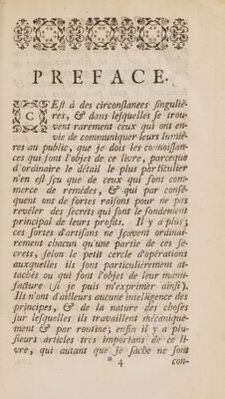 PREFACE.
C'Est à des circonstances singuliè-
res, & dans lesquelles se trou-
vent rarement ceux qui ont en-
vie de communiquer leurs lumiè-
res au public, que je dois les connoissan-
ces qui font l'objet de ce livre, parceque
d'ordinaire le détail le plus particulier
n'en est sçu que de ceux qui font com-
merce de remèdes, & qui par consé-
quent ont de fortes raisons pour ne pas
revéler des secrets qui sont le fondement
principal de leurs profits. Il y a plus;
ces sortes d'artisans ne sçavent ordinai-
rement chacun qu'une partie de ces se-
crets, selon le petit cercle d'opérations
auxquelles ils sont particulièrement at-
tachés ou qui font l'objet de leur manu-
facture (si je puis m'exprimer ainsi).
Ils n'ont d'ailleurs aucune intelligence des
principes, & de la nature des choses
sur lesquelles ils travaillent méchanique-
ment & par routine; enfin il y a plu-
sieurs articles très importans de ce li-
vre, qui autant que je sache ne sont
* 4 con-